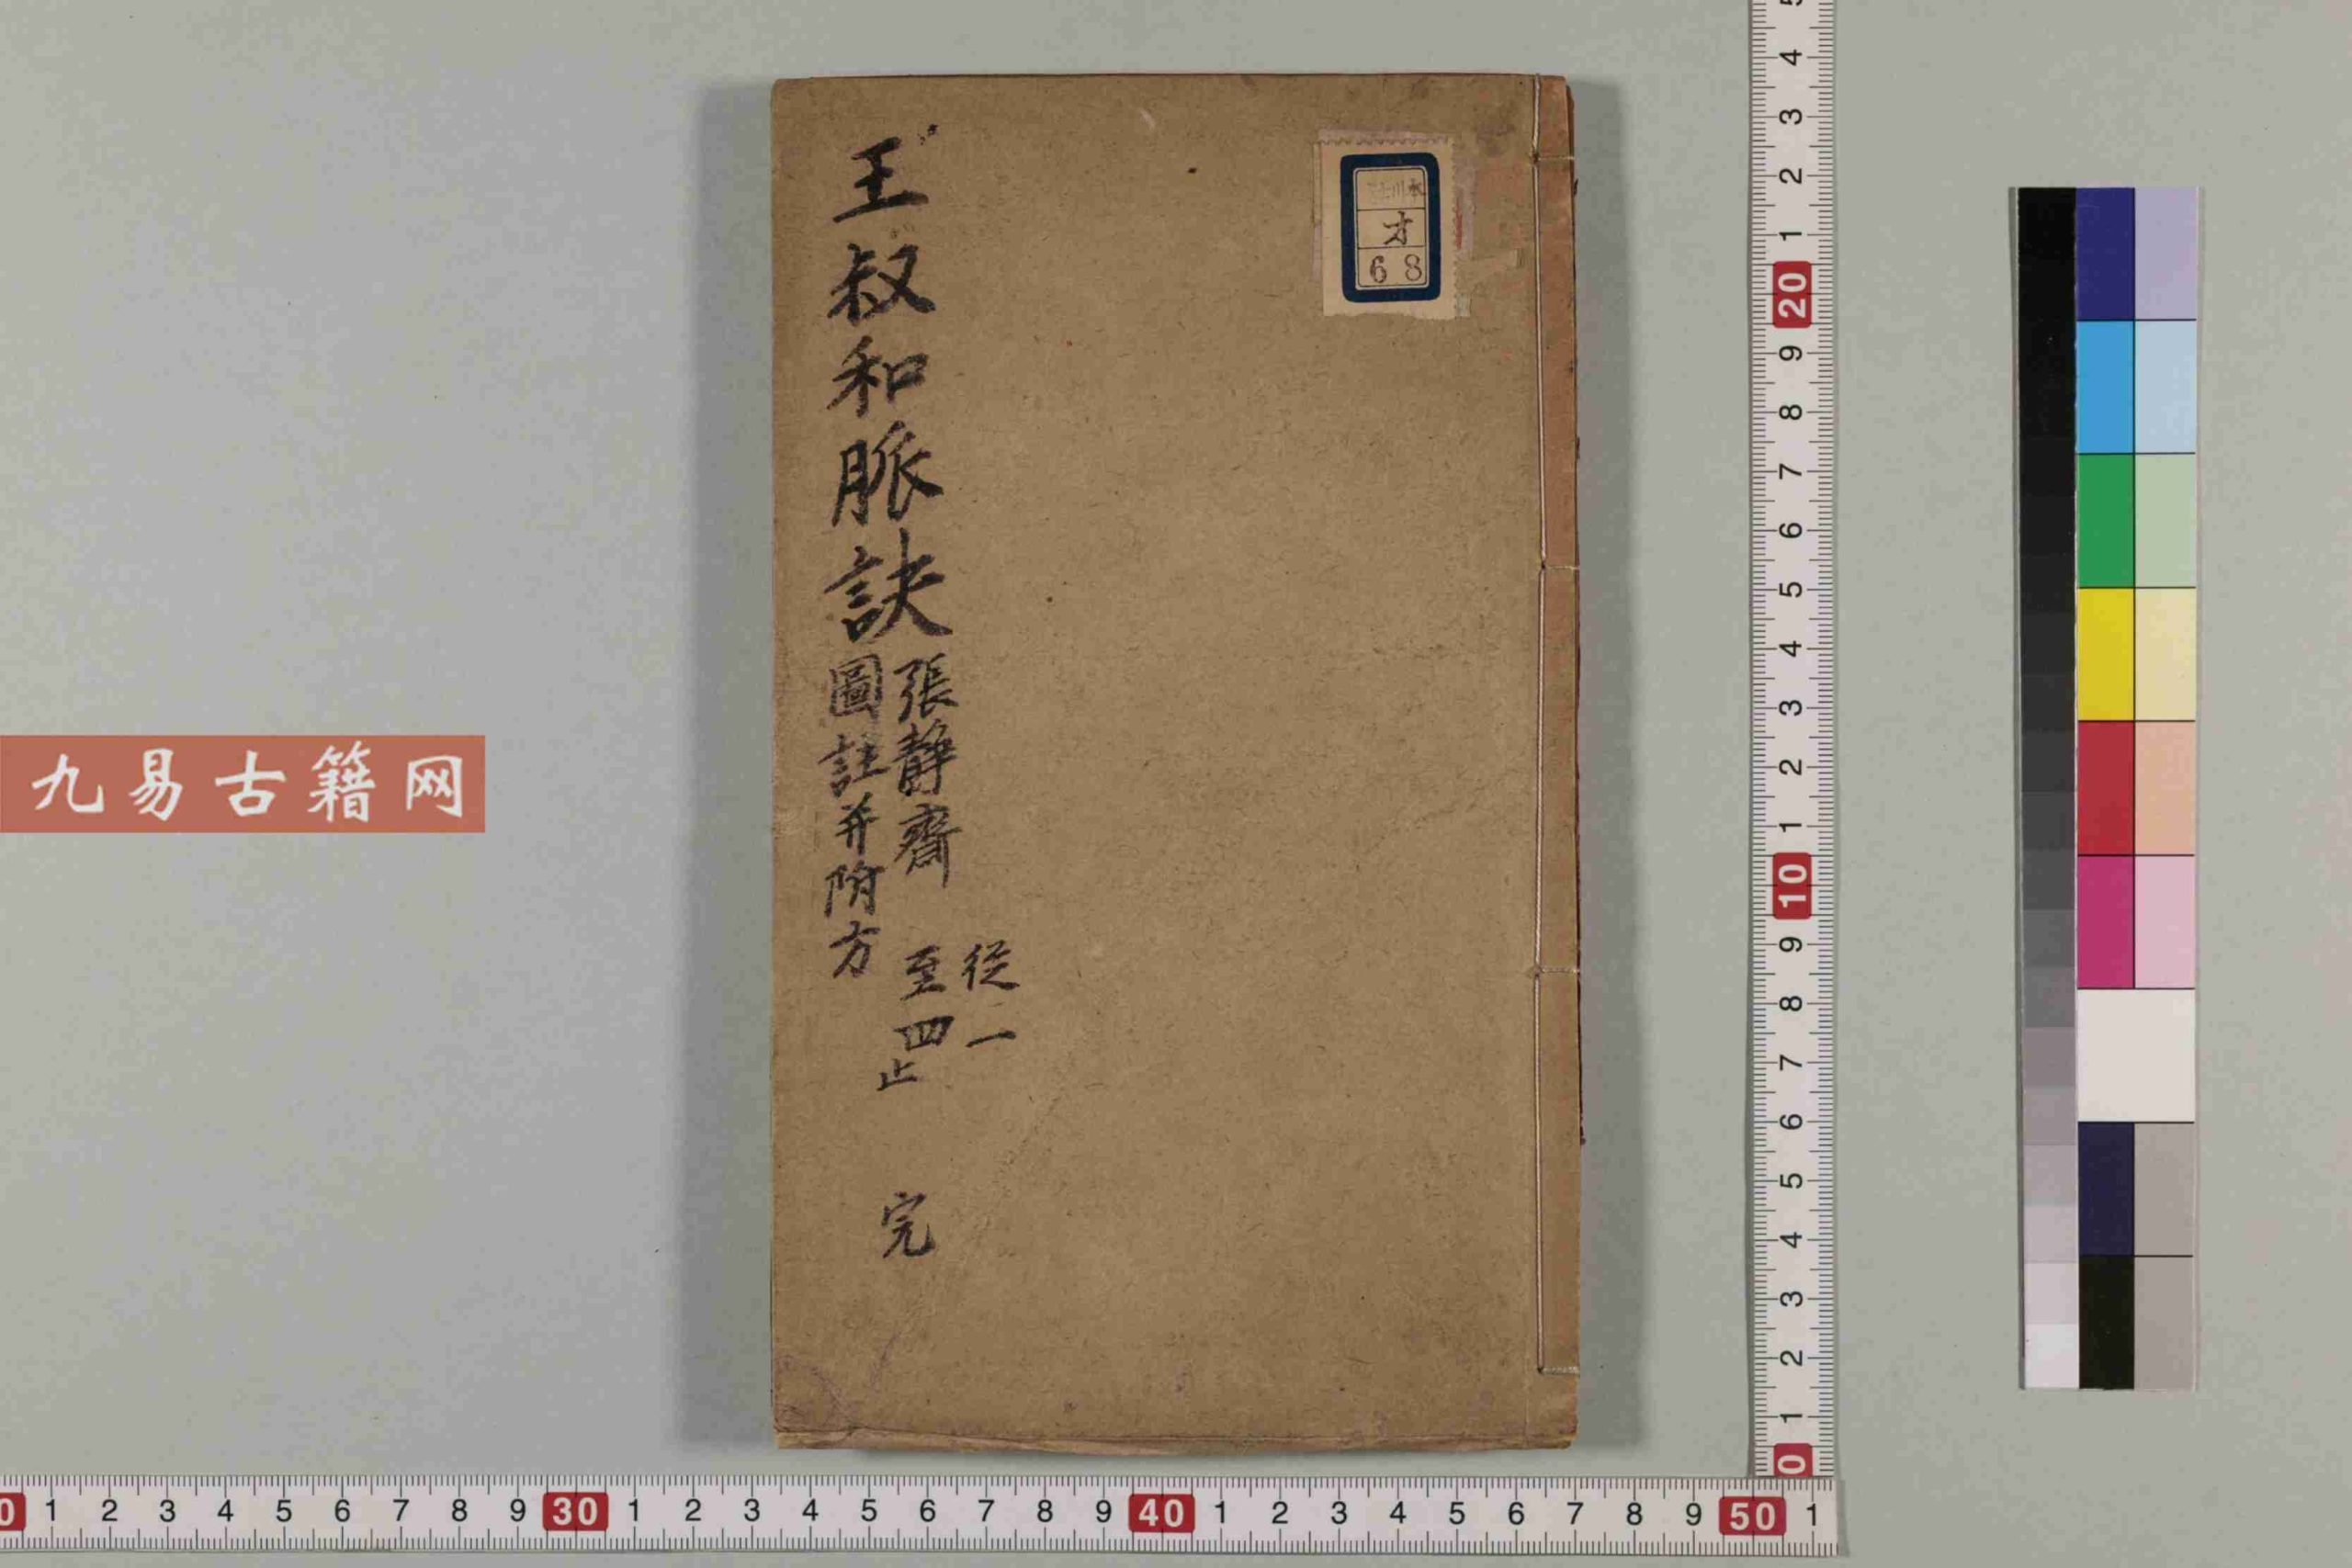 王叔和脈訣
張靜齋
圖註并附方
從一
至四止
完
才
68
九易古籍网
5 4 3 2 1 20 9 8 7 6 5 4 3 2 1 10 9 8 7 6 5 4 3 2 1 0
0 1 2 3 4 5 6 7 8 9 30 1 2 3 4 5 6 7 8 9 40 1 2 3 4 5 6 7 8 9 50 1